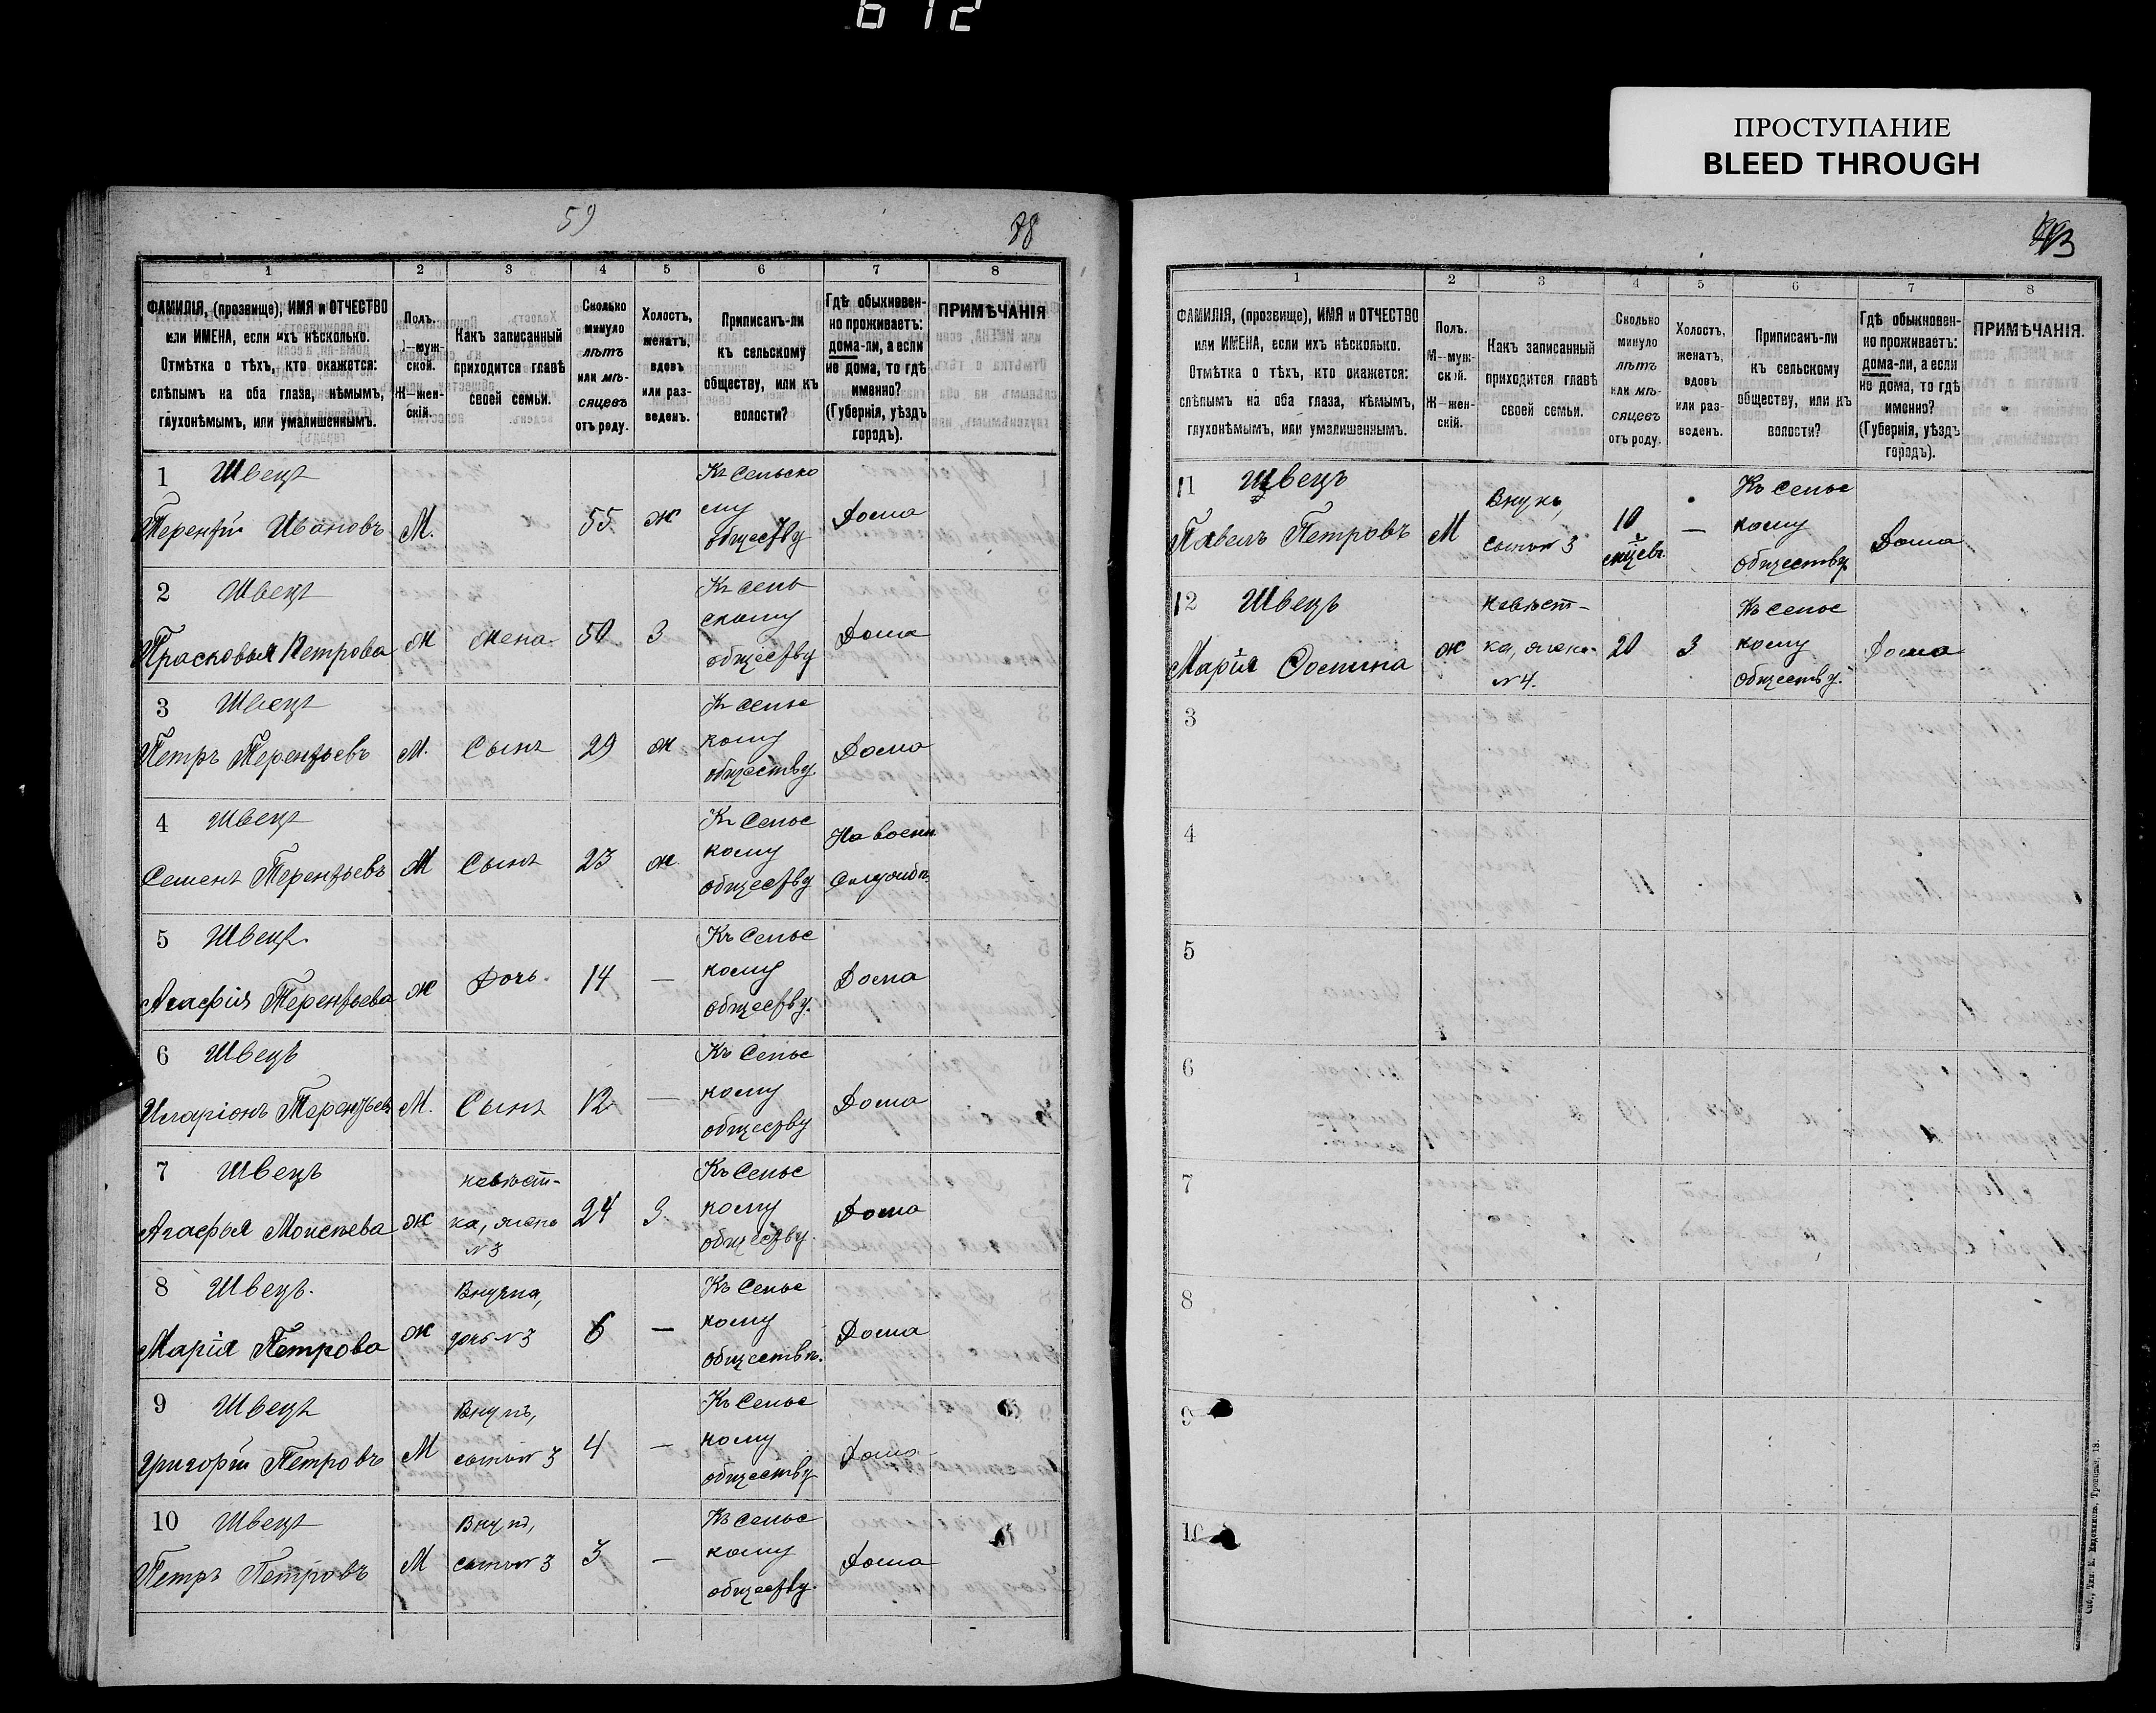 612
ПРОСТУПАНИЕ
BLEED THROUGH
59
78
1 2 3 4 5 6 7 8
ФАМИЛІЯ, (прозвище), ИМЯ и ОТЧЕСТВО
или ИМЕНА, если ихъ нѣсколько.
Отмѣтка о тѣхъ, кто окажется:
слѣпымъ на оба глаза, нѣмымъ,
глухонѣмымъ, или умалишеннымъ.
Полъ.
М—муж-
ской.
Ж—жен-
скій.
Какъ записанный
приходится главѣ
своей семьи.
Сколько
минуло
лѣтъ
или мѣ-
сяцевъ
отъ роду.
Холостъ,
женатъ,
вдовъ
или раз-
веденъ.
Приписанъ-ли
къ сельскому
обществу, или къ
волости?
Гдѣ обыкновен-
но проживаетъ:
дома-ли, а если
не дома, то гдѣ
именно?
(Губернія, уѣздъ
городъ).
ПРИМѢЧАНІЯ
1 Швецъ
Терентій Ивановъ
М.
55
ж
Къ Сельско
му
обществу
Дома
2 Швецъ
Прасковья Петрова
ж
жена
50
З
Къ сель
скому
обществу
Дома
3 Швецъ
Петръ Терентьевъ
М.
Сынъ
29
ж
Къ сельс
кому
обществу
Дома
4 Швецъ
Семенъ Терентьевъ
М
Сынъ
23
ж.
Къ Сельс
кому
обществу
На воен
5 Швецъ
Агафія Терентьева
ж
Дочь.
14
—
Къ Сельс
кому
обществу.
Дома
6 Швецъ
Иларіонъ Терентьевъ
М.
Сынъ
12
—
Къ Сельс
кому
обществу
Дома
7 Швецъ
Агафья Моисѣева
ж
невѣст-
ка, жена
№3
24
З.
Къ Сельс
кому
обществу.
Дома
8 Швецъ.
Марія Петрова
ж
Внучка,
дочь №3
6
—
Къ Сельс
кому
обществу.
Дома
9 Швецъ
Григорій Петровъ
М
Внукъ,
сынъ№ 3
4
—
Къ Сельс
кому
обществу
Дома
10 Швецъ
Петръ Петровъ
М
Внукъ,
сынъ№ 3
3
—
Къ сельс
кому
обществу.
Дома
1 2 3 4 5 6 7 8
ФАМИЛІЯ, (прозвище), ИМЯ и ОТЧЕСТВО
или ИМЕНА, если ихъ нѣсколько.
Отмѣтка о тѣхъ, кто окажется:
слѣпымъ на оба глаза, нѣмымъ,
глухонѣмымъ, или умалишеннымъ.
Полъ.
М—муж-
ской.
Ж—жен-
скій.
Какъ записанный
приходится главѣ
своей семьи.
Сколько
минуло
лѣтъ
или мѣ-
сяцевъ
отъ роду.
Холостъ,
женатъ,
вдовъ
или раз-
веденъ.
Приписанъ-ли
къ сельскому
обществу, или къ
волости?
Гдѣ обыкновен-
но проживаетъ:
дома-ли, а если
не дома, то гдѣ
именно?
(Губернія, уѣздъ
городъ).
ПРИМѢЧАНІЯ.
11 Швецъ
Павелъ Петровъ
М
Внукъ,
сынъ№ 3
10
—
Къ сельс
кому
обществу
Дома
12 Швецъ
Марія Фомина
ж
невѣст-
ка, жена
№4.
20
З
Къ сельс
кому
обществу.
Дома
3
4
5
6
7
8
9
10
Спб., Тип. Е. Евдокимов, Троицкая, 18.